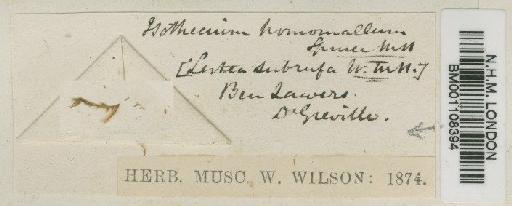 Isothecium homomallum
Spruce MS
[Leskea subrufa W. MS.]
Ben Lawers.
Dr Greville.
HERB. MUSC. W. WILSON: 1874.
N.H.M. LONDON
BM001108394